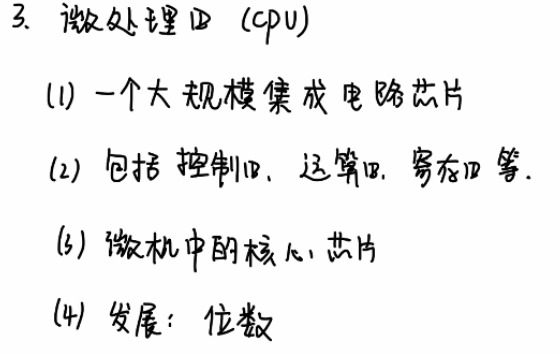 3. 微处理器 (CPU)
(1) 一个大规模集成电路芯片
(2) 包括控制器、运算器、寄存器等.
(3) 微机中的核心芯片
(4) 发展：位数